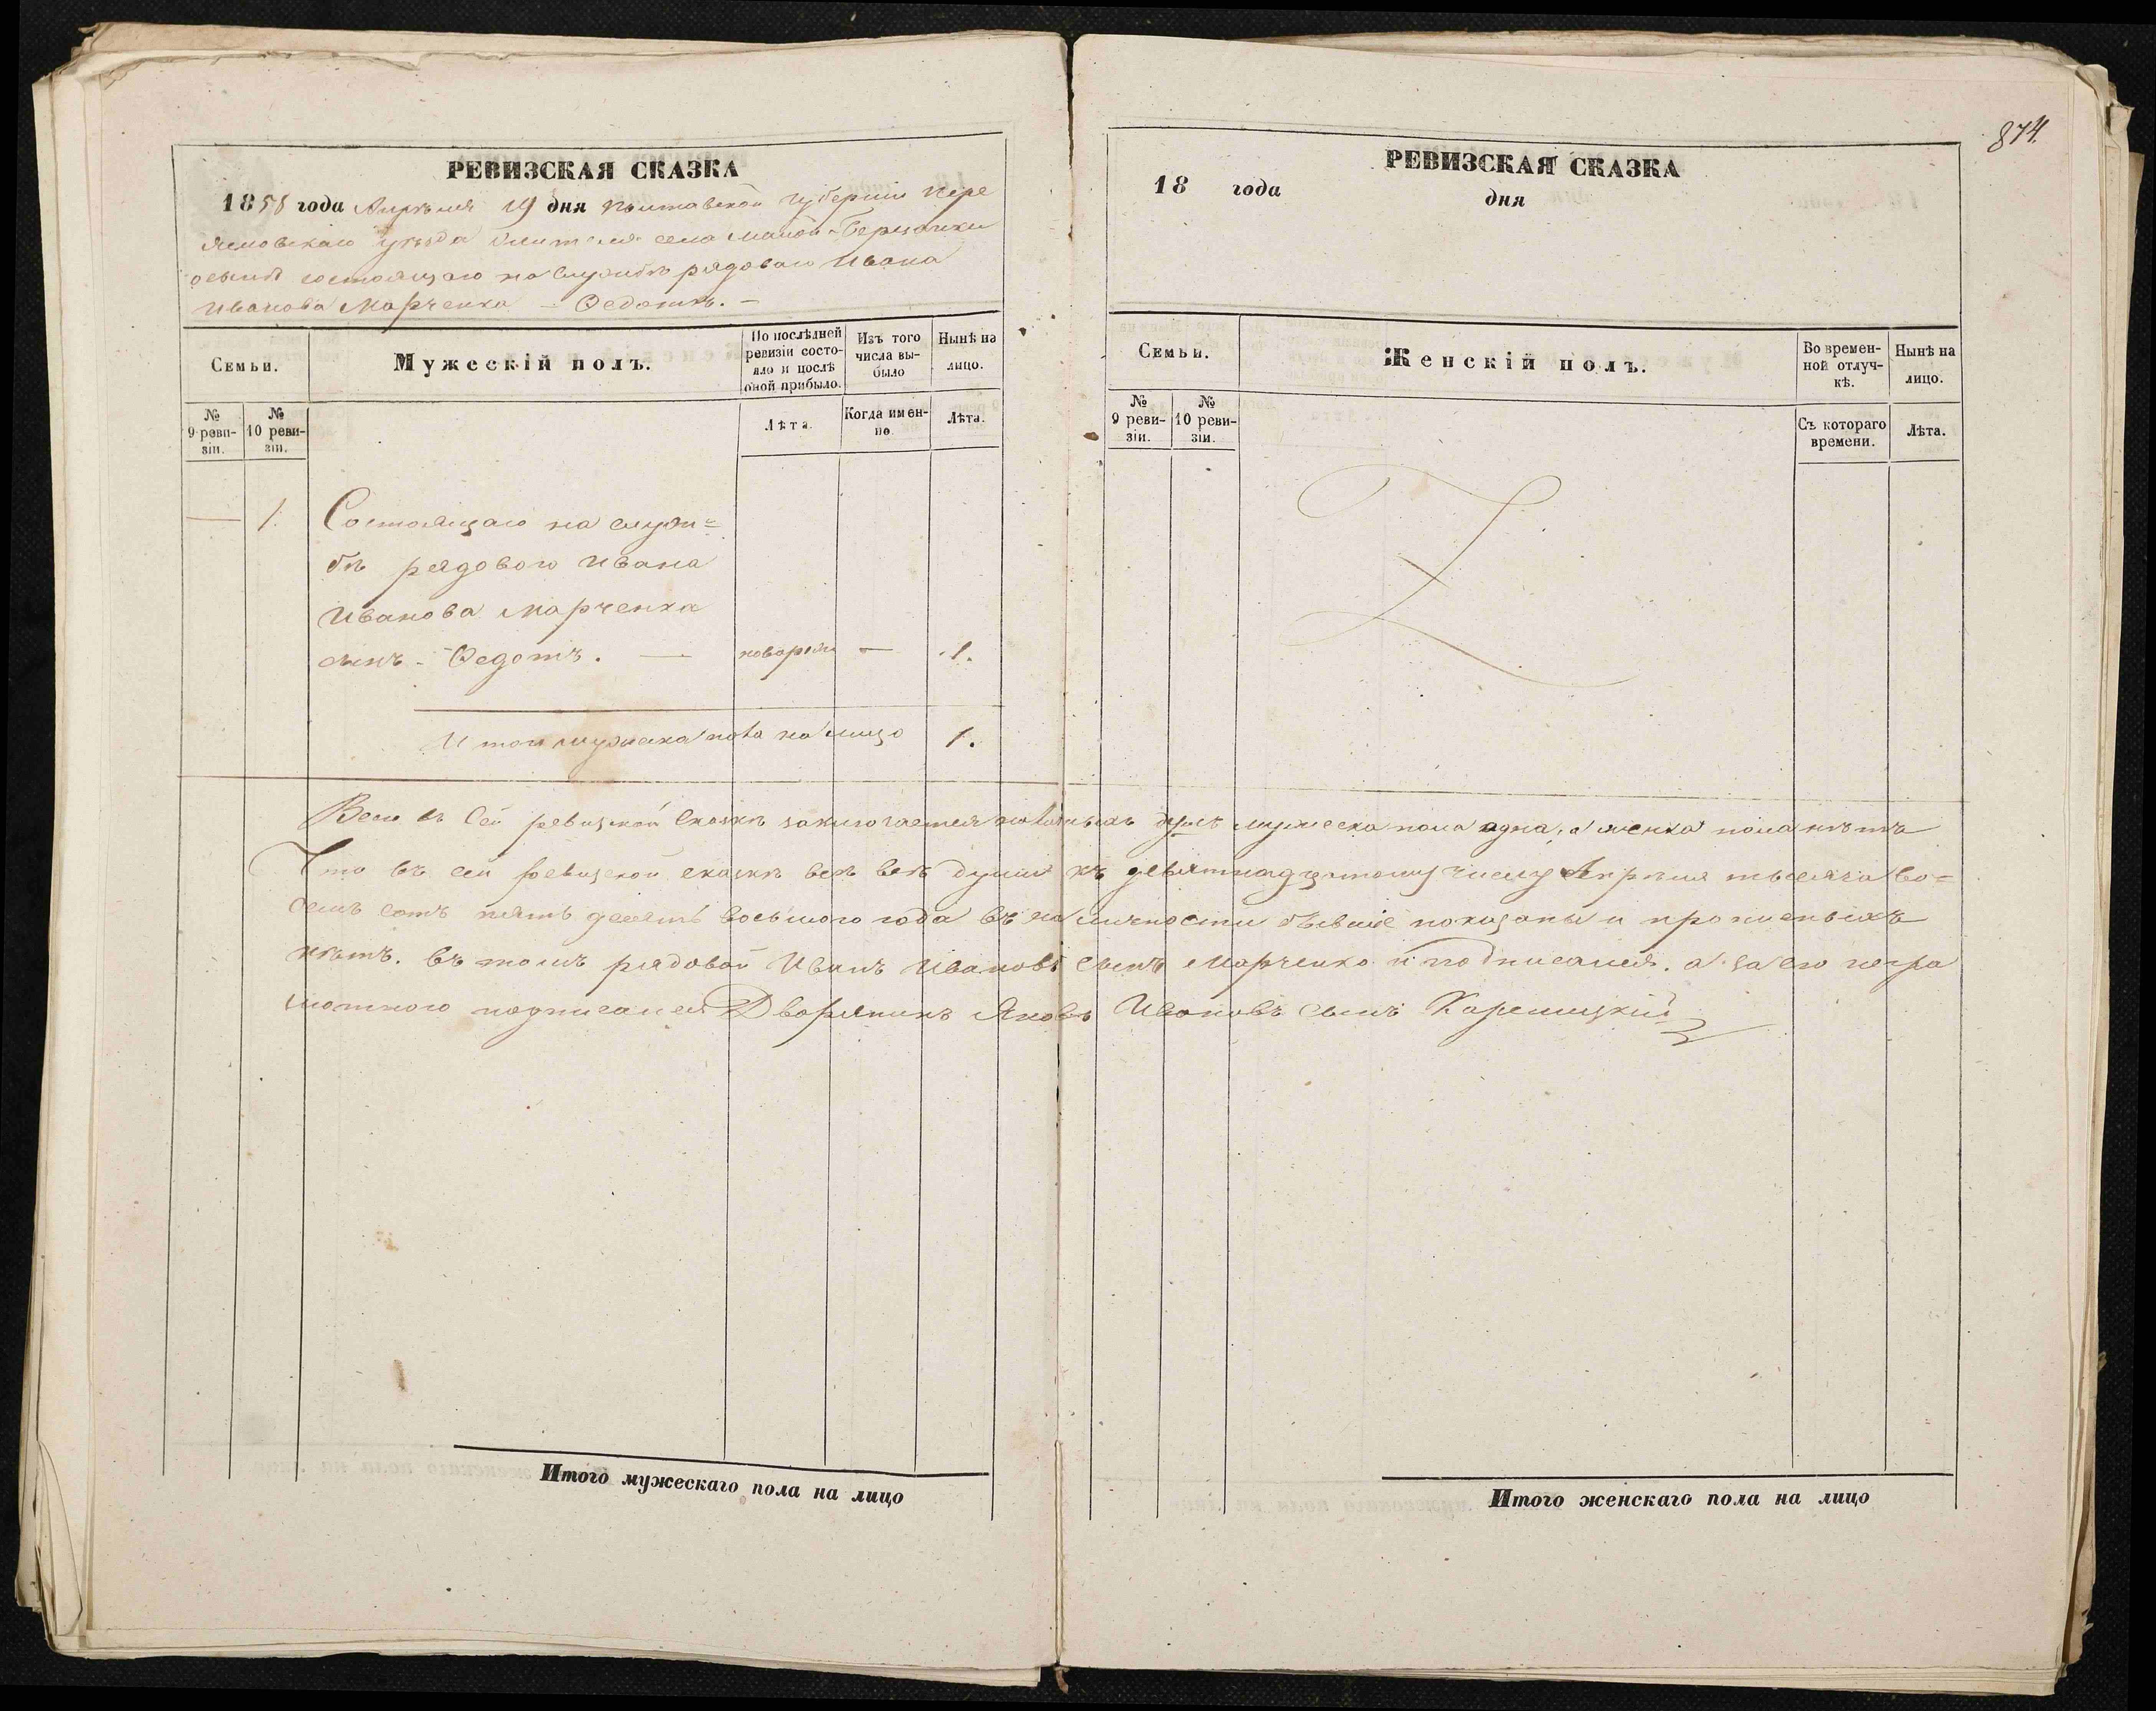 874.
РЕВИЗСКАЯ СКАЗКА
1858 года Апрѣля 19 дня Полтавской губерніи Пере
яславскаго уѣзда жителя села Малой-Березанки
о сынѣ состоящаго на службѣ рядоваго Ивана
Иванова Марченка — Федотъ. —
Семьи.
Мужескій полъ.
По послѣдней ревизіи состояло и послѣ оной прибыло.
Изъ того числа выбыло
Нынѣ на лицо.
№ 9 ревизіи.
№ 10 ревизіи.
Лѣта.
Когда именно.
Лѣта.
— 1. Состоящаго на служ=
бѣ рядового Ивана
Иванова Марченка
сынъ - Федотъ. — новорож — 1.
Итого мужеска пола на лицо 1.
РЕВИЗСКАЯ СКАЗКА
18 года дня
Семьи.
Женскій полъ.
Во временной отлучкѣ.
Нынѣ на лицо.
№ 9 ревизіи.
№ 10 ревизіи.
Съ котораго времени.
Лѣта.
Всего въ сей ревизской сказкѣ заключается наличныхъ душъ мужеска пола одна, а женска пола нѣтъ
Что въ сей ревизской сказкѣ всѣ души къ девятнадцатому числу Апрѣля тысяча во=
семь сотъ пять десятъ восьмого года въ наличности бывшіе показаны и прописныхъ
нѣтъ. въ томъ рядовой Иванъ Ивановъ сынъ Марченко и подписался. а за его негра
мотного подписался Дворянинъ Яковъ Ивановъ сынъ
Итого мужескаго пола на лицо
Итого женскаго пола на лицо